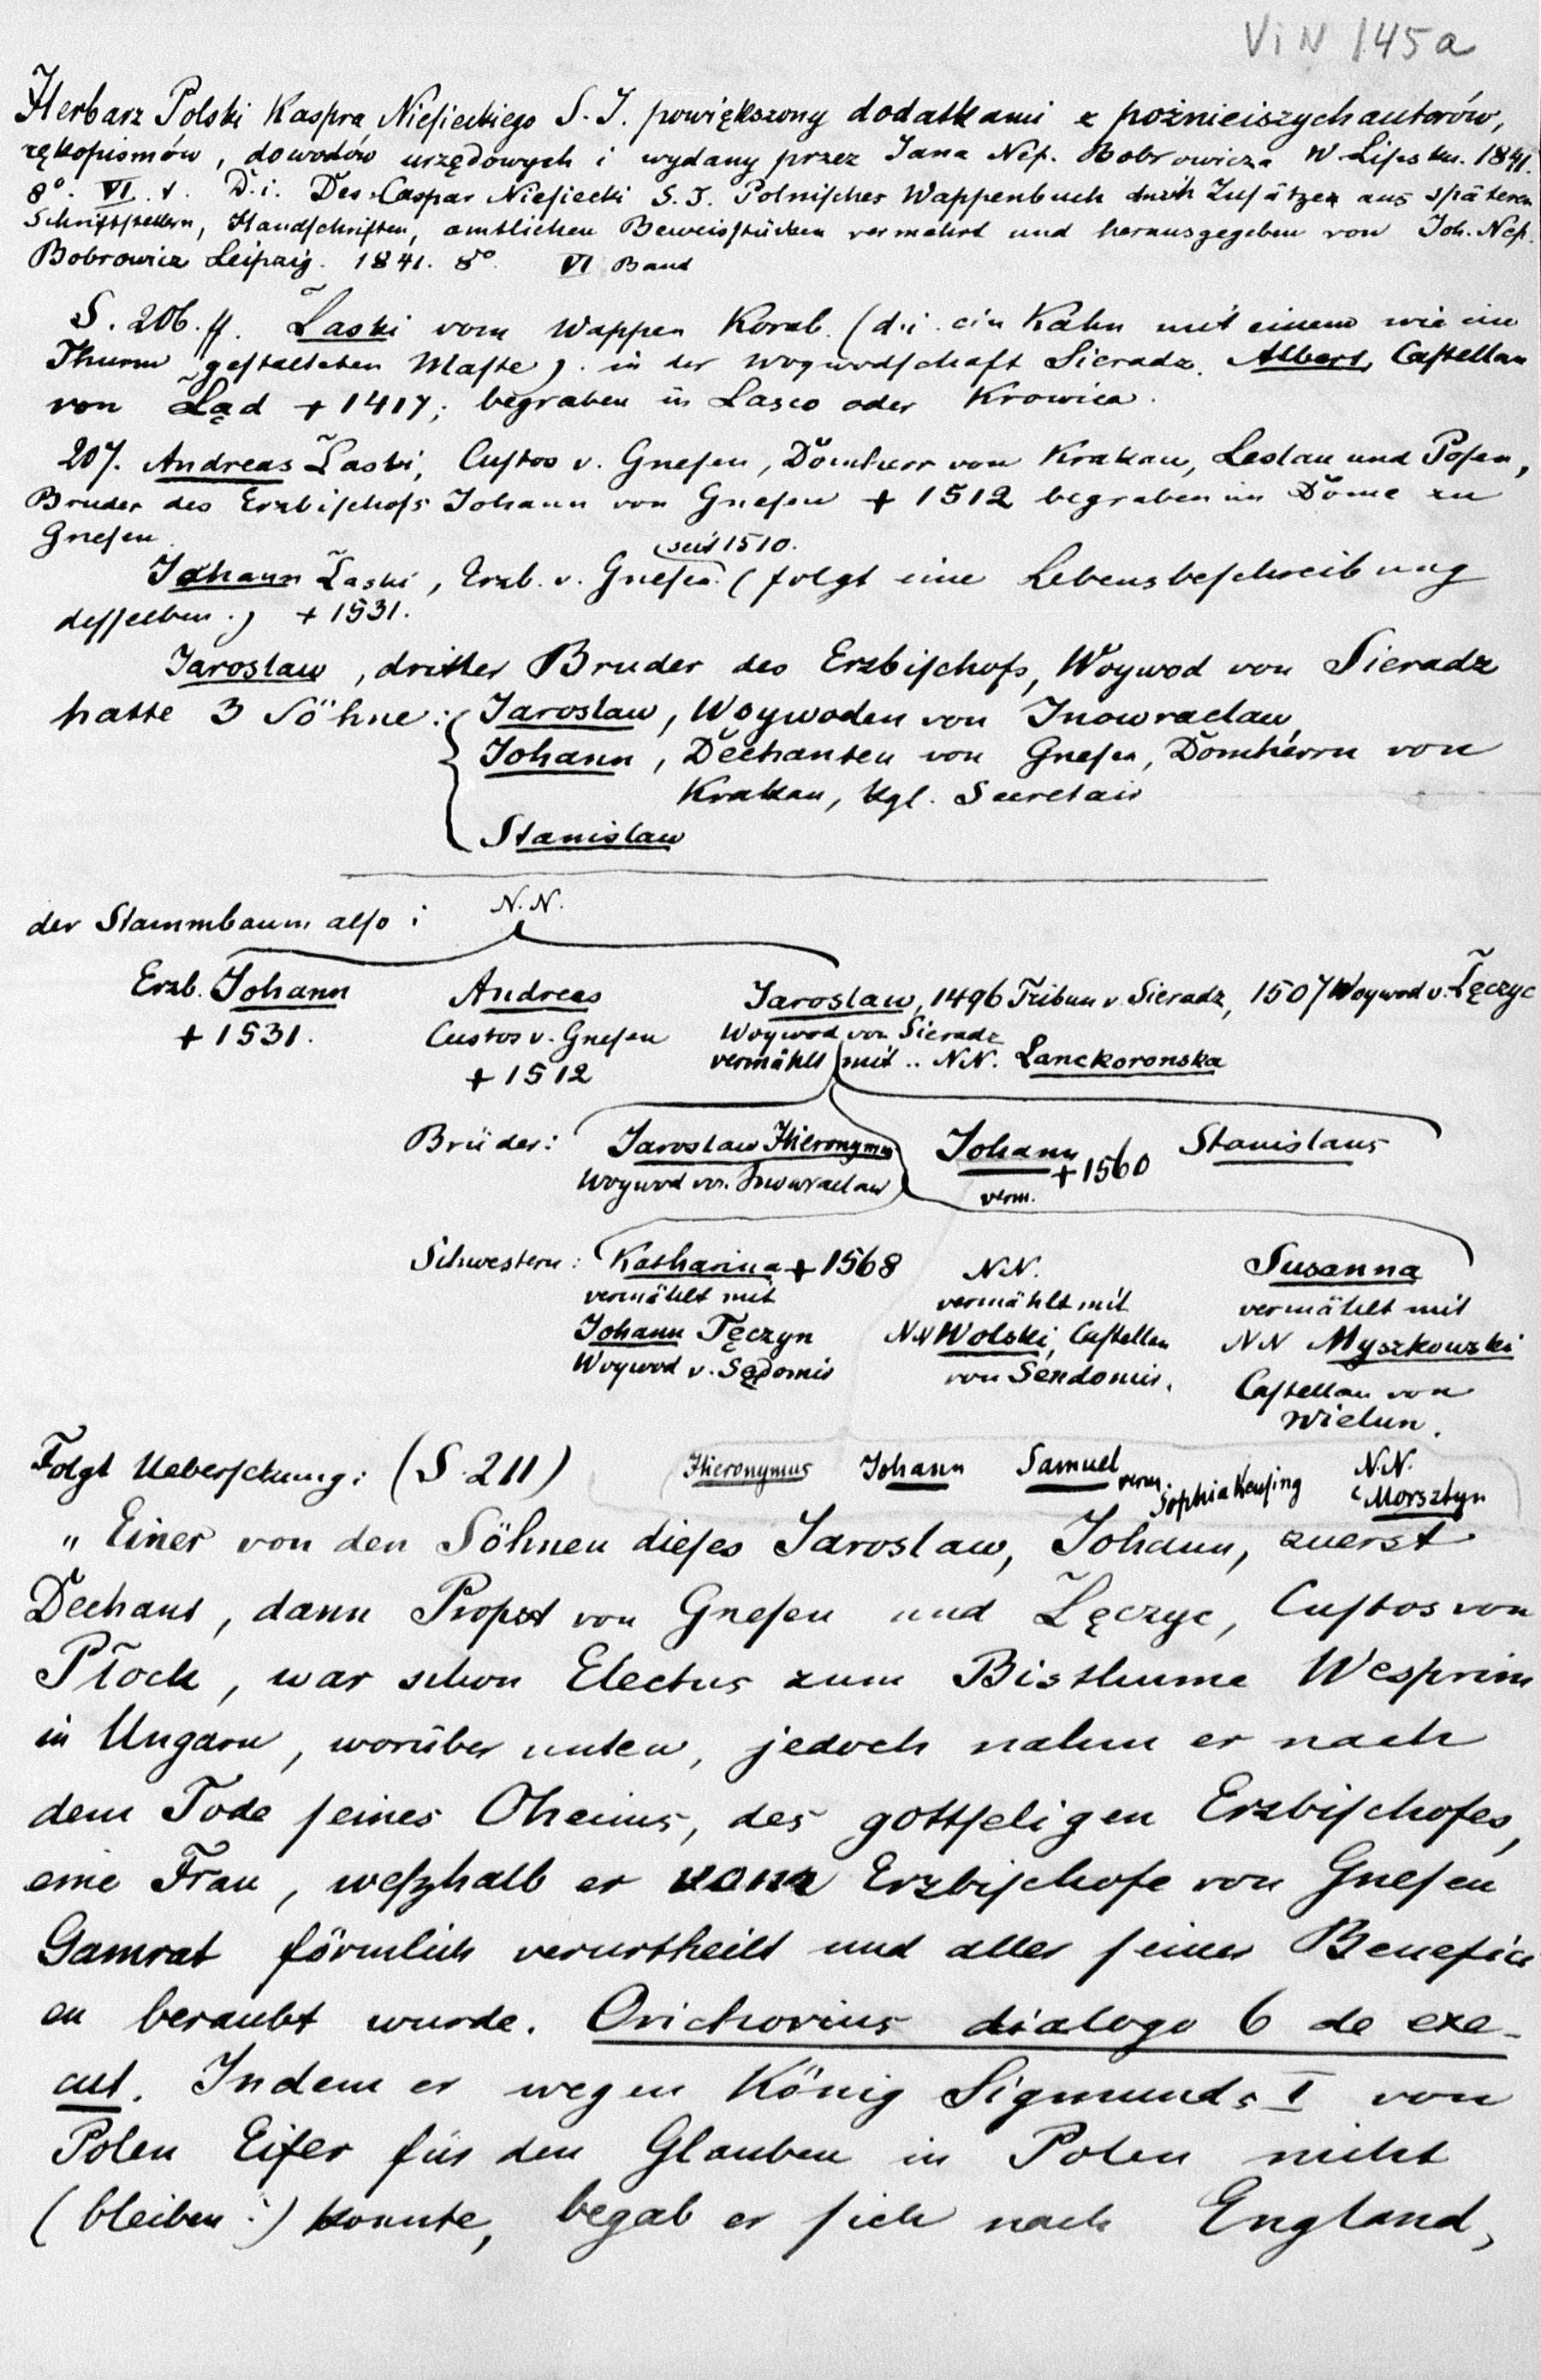 ViN 145a
Herbarz Polski Kaspra Niesieckiego S. J. powiększony dodatkami z poźnieiszych autorów,
rękopismów, dowodów urzędowych i wydany przez Jana Nep. Bobrowicza W Lipsku. 1841.
8°. VI. t. D. i. Des Caspar Niesiecki S. J. Polnisches Wappenbuch durch Zusätzen aus späteren
Schriftstellern, Handschriften, amtlichen Beweisstücken vermehrt und herausgegeben von Joh. Nep.
Bobrowicz Leipzig. 1841. 8° VI Band
S. 206. ff. Łaski vom Wappen Korab. (d. i. ein Kahn mit einem wie ein
Thurm gestalteten Maste). in der Woywodschaft Sieradz. Albert, Castellan
von Ląd + 1417; begraben in Lasco oder Krowica.
207. Andreas Łaski, Custos v. Gnesen, Domherr von Krakau, Leslau und Posen,
Bruder des Erzbischofs Johann von Gnesen + 1512 begraben im Dome zu
Gnesen
seit 1510.
Johann Łaski, Erzb. v. Gnesen. (folgt eine Lebensbeschreibung
desselben.) + 1531.
Jaroslaw, dritter Bruder des Erzbischofs, Woywod von Sieradz
hatte 3 Söhne: Jaroslaw, Woywoden von Inowraclaw
Johann, Dechanten von Gnesen, Domherrn von
Krakau, kgl. Secretair
Stanislaw
N. N.
der Stammbaum also:
Erzb. Johann Andreas Jaroslaw, 1496 Tribun v. Sieradz, 1507 Woywod v. Łęczyc
+ 1531. Custos v. Gnesen Woywod von Sieradz
+ 1512 vermählt mit .. N.N. Lanckoronska
Brüder: Jaroslaw Hieronymus Johann + 1560 Stanislaus
Woywod von Inowraclaw verm.
Schwestern: Katharina + 1568 N.N. Susanna
vermählt mit vermählt mit vermählt mit
Johann Tęczyn NN Wolski, Castellan NN Myszkowski
Woywod v. Sędomir von Sendomir. Castellan von
Wielun.
Folgt Uebersetzung: (S. 211) Hieronymus Johann Samuel verm. Sophia N.N.
Morsztyn
„Einer von den Söhnen dieses Jaroslaw, Johann, zuerst
Dechant, dann Propst von Gnesen und Łęczyc, Custos von
Płock, war schon Electus zum Bisthume Wesprim
in Ungarn, worüber unten, jedoch nahm er nach
dem Tode seines Oheims, des gottseligen Erzbischofes,
eine Frau, weßhalb er vom Erzbischofe von Gnesen
Gamrat förmlich verurtheilt und aller seiner Benefici
en beraubt wurde. Orichovius dialogo 6 de exe-
cut. Indem er wegen König Sigmunds I von
Polen Eifer für den Glauben in Polen nicht
(bleiben:) konnte, begab er sich nach England,